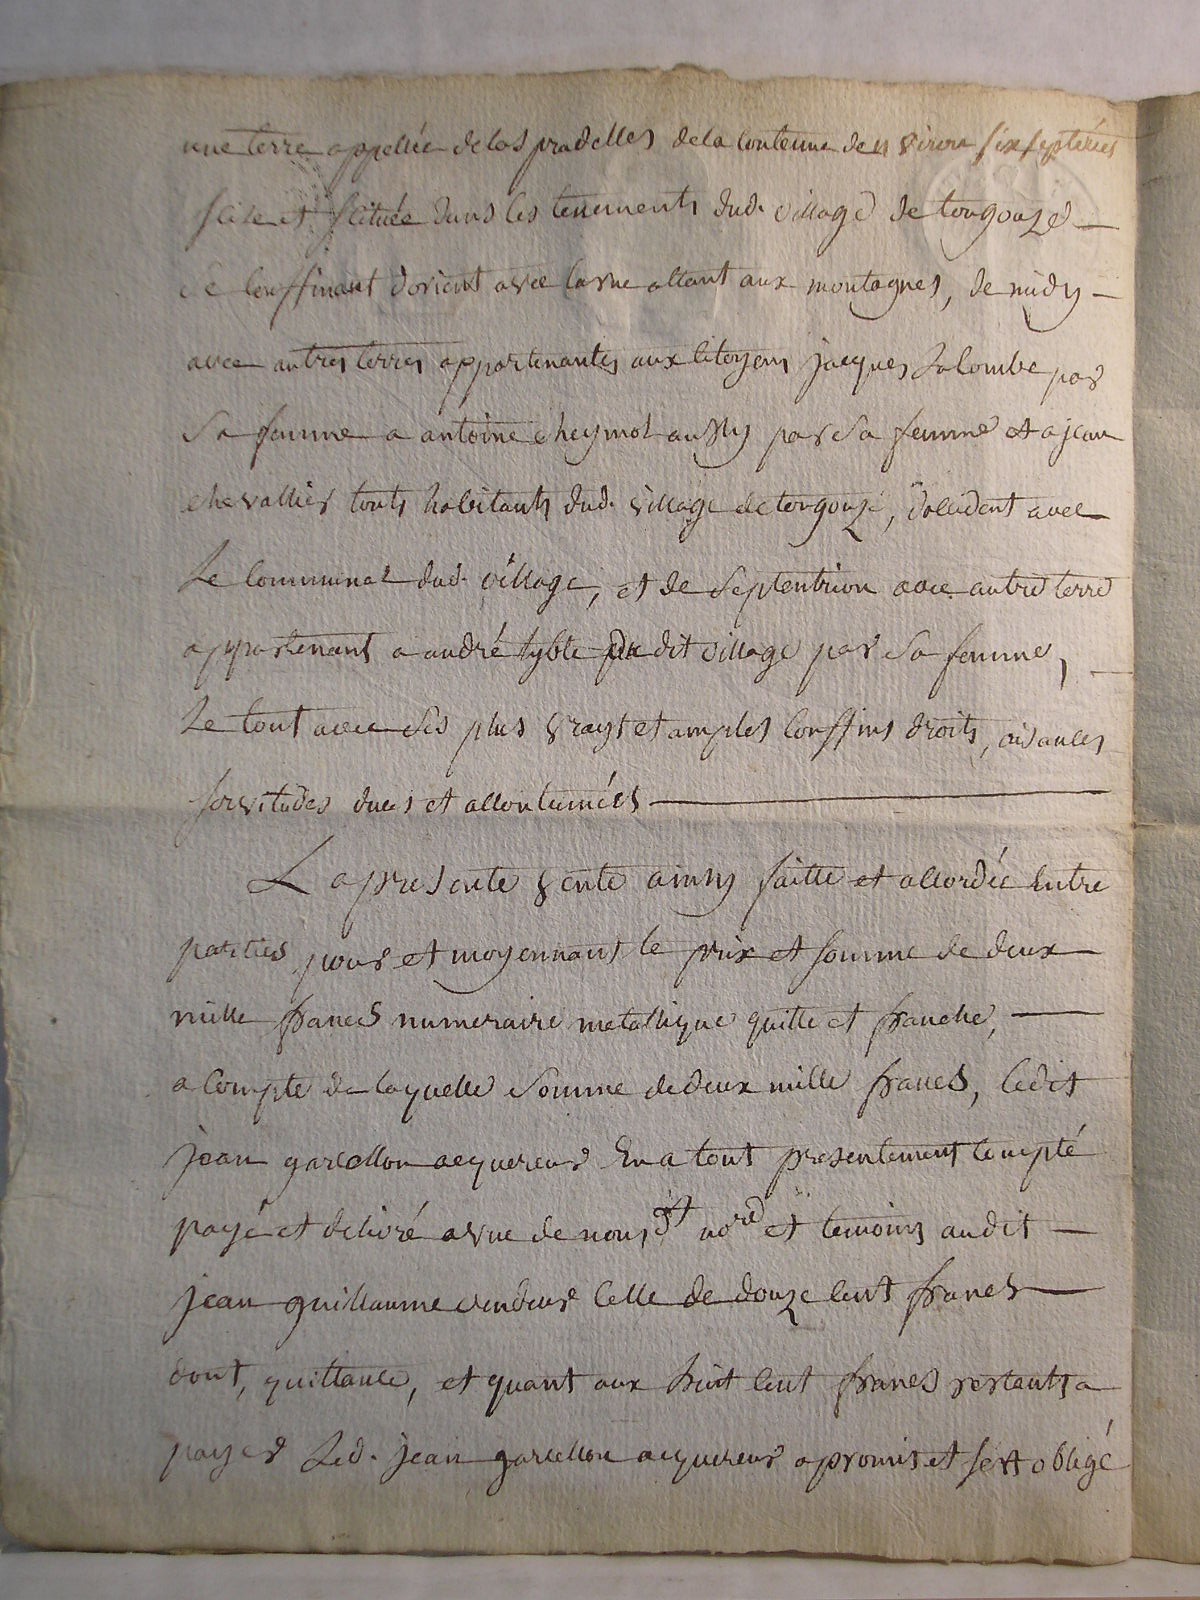 une terre appellée de las pradelles de la contenue d'environ six septerées
scize et scituée dans les tenements dud. village de tougouze
se conffinant d'orient avec la rue allant aux montagnes, de midy
avec autres terres appartenantes aux citoyens jacques Salombe par
Sa femme a antoine cheymol aussy par Sa femme et a jean
chevallier touts habitants dud. village de tougouze, d'occident avec
Le communal dud. village, et de Septentrion avec autre terre
appartenant a andré du dit village par Sa femme,
Le tout avec Ses plus vrays et amples conffins droits, aisances
servitudes dues et accoutumées
La presente vente ainsy faitte et accordée Entre
parties pour et moyennant le prix et somme de deux
mille francs numeraire metallique quitte et franche,
a compte de laquelle Somme de deux mille francs, ledit
jean garcellon acquereur En a tout presentement compté
payé et delivré a vue de nous dt nore et temoins audit
jean guillaume vendeur celle de douze cent francs
dont, quittance, et quant aux huit cent francs restants a
payer Led. jean garcellon acquereur a promis et s'est obligé